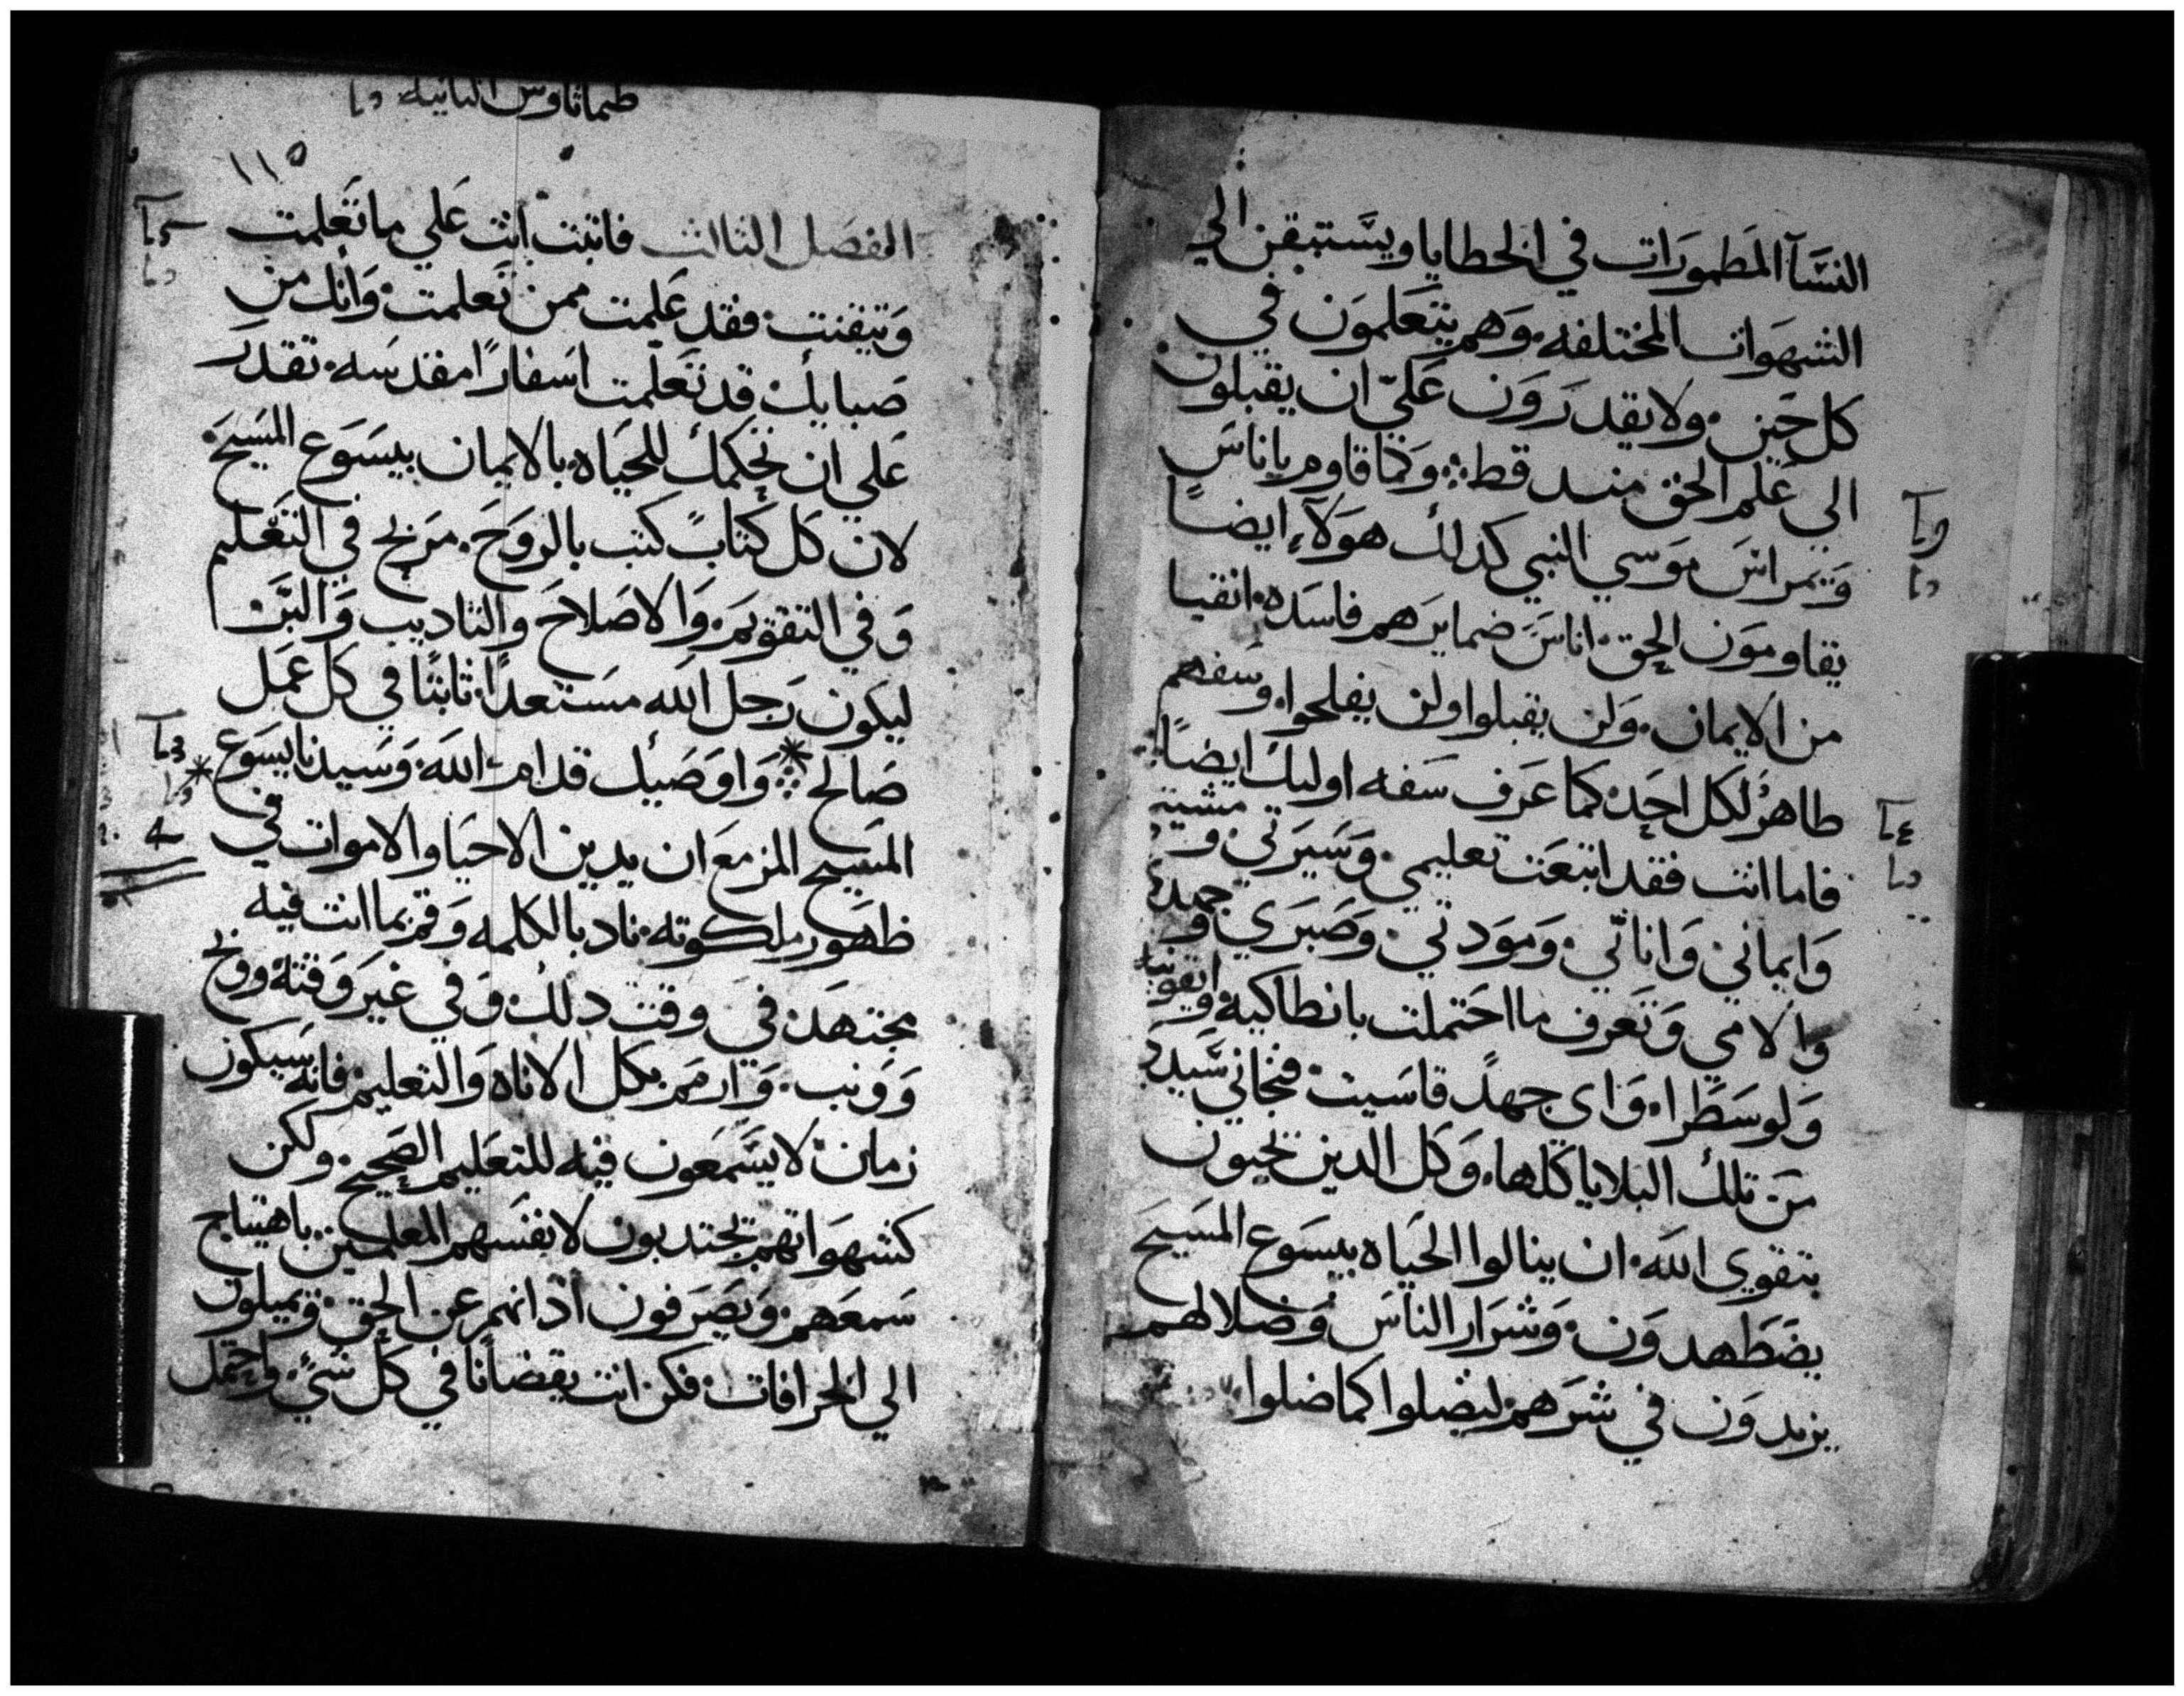 النسآ المطمورات في الخطايا ويستبقن الي
الشهوات المختلفه وهم يتعلمون في
كل حين ولا يقدرون علي ان يقبلون
الي علم الحق منـد قط وكما قاوم ياناس
ويمراس موسي النبي كدلك هولآء ايضاً
يقاومون الحق اناس ضمايرهم فاسده انقيا
من الايمان ولن يقبلوا ولن يفلحوا وسفههم
طاهر لكل احد كما عرف سفه اوليك ايضاً
فاما انت فقد اتبعت تعليمي وسيرتي و مشيتي
وايماني واناتي ومودتي وصبري و جهدي
والامي وتعرف ما احتملت بانطاكيه و ايقونيا
ولوسطرا واى جهد قاسيت فنجاني سيدي
من تلك البلايا كلها وكل الدين يحبون
بتقوي الله ان ينالوا الحياه بيسوع المسيح
يضطهدون وشرار الناس وضلالهم
يزيدون في شرهم ليضلوا كما ضلوا
طيماتاوس التانيه
١١٥
الفصل الثالث فاثبت انت علي ما تعلمت
وتيقنت فقد علمت ممن تعلمت وانك من
صبايك قد تعلمت اسفاراً مقدسه تقدر
علي ان تحكمك للحياه بالايمان بيسوع المسيح
لان كل كتاب كتب بالروح مربح في التعليم
وفي التقويم والاصلاح والتاديب والبر
ليكون رجل الله مستعداً ثابتا في كل عمل
صالح واوصيك قدام الله وسيدنا يسوع
المسيح المزمع ان يدين الاحيا والاموات في
ظهور ملكوته ناد بالكلمه وقم بما انت فيه
مجتهد في وقت دلك وفي غير وقته ووبخ
وونب وارمم بكل الاناه والتعليم فانه سيكون
زمان لا يسمعون فيه للتعليم الصحيح ولكن
كشهواتهم يجتدبون لانفسهم المعلمين باهتياج
سمعهم ويصرفون ادانهم عن الحق ويميلون
الي الخرافات فكن انت يقضانا في كل شي واحتمل